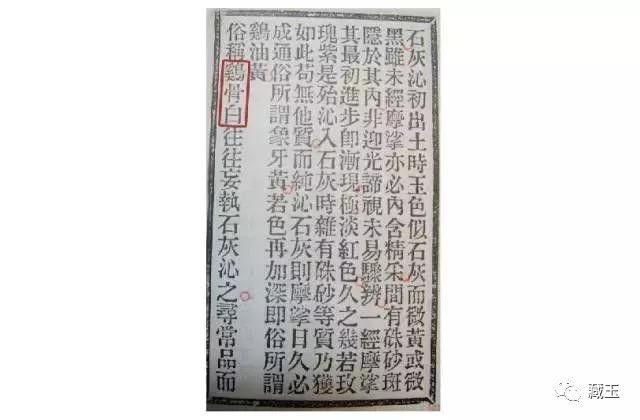 石灰沁初出土時玉色似石灰而微黃或微
黑雖未經摩挲亦必內含精采間有硃砂斑
隱於其內非迎光諦視未易驟辨一經摩挲
其最初進步即漸現極淡紅色久之幾若玫
瑰紫是殆沁入石灰時雜有硃砂等質乃獲
如此苟無他質而純沁石灰則摩挲日久必
成通俗所謂象牙黃若色再加深即俗所謂
鷄油黃
俗稱鷄骨白往往妄執石灰沁之尋常品而
藏玉